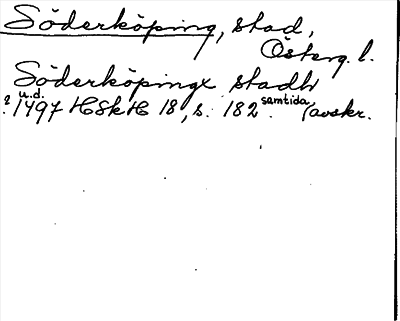 Söderköping, stad,
Österg. l.
Söderköpingx stadh
u.d.
? 1497 HSkH 18, s. 182. samtida (avskr.